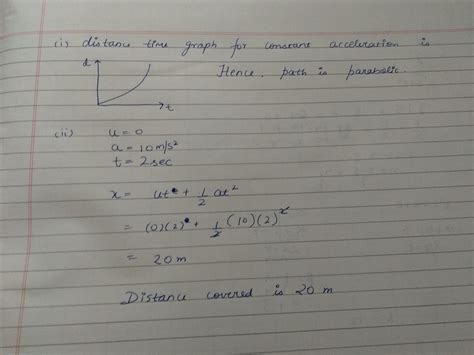 (i) distance time graph for constant acceleration is
d
t
Hence, path is parabolic.
(ii) u = 0
a = 10 m/s²
t = 2 sec
x = ut + 1/2 at²
= (0)(2) + 1/2 (10)(2)²
= 20 m
Distance covered is 20 m